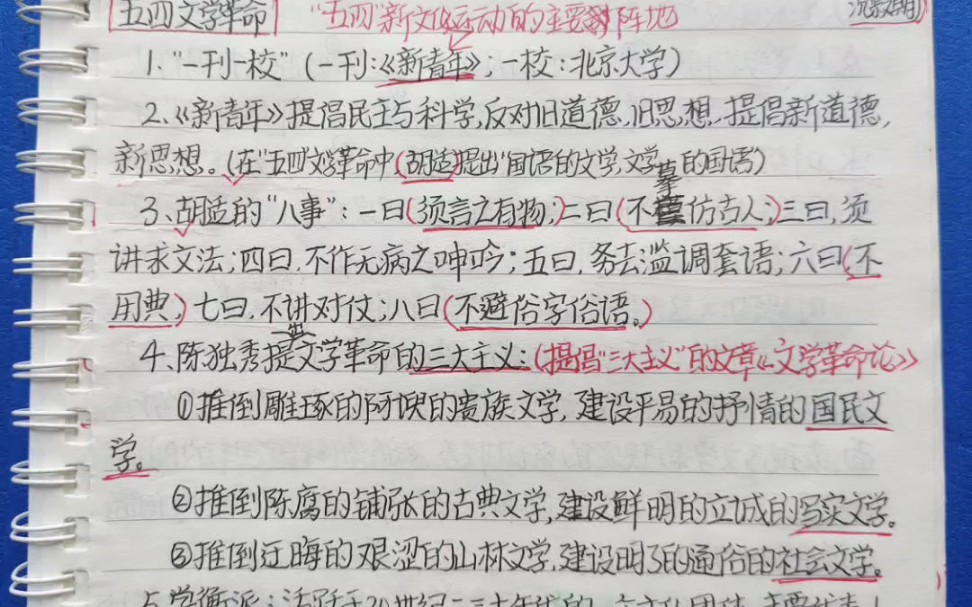 五四文学革命 "五四"新文化运动的主要阵地
1."一刊一校"(一刊:《新青年》;一校:北京大学)
2、《新青年》提倡民主与科学,反对旧道德,旧思想,提倡新道德,
新思想。(在"五四"文学革命中(胡适)提出"国语的文学,文学的国语")
3、胡适的"八事":一曰(须言之有物,)二曰(不摹仿古人,)三曰,须
讲求文法;四曰,不作无病之呻吟;五曰,务去滥调套语;六曰(不
用典,)七曰,不讲对仗;八曰(不避俗字俗语。)
4、陈独秀提文学革命的三大主义:(提倡"三大主义"的文章《文学革命论》)
①推倒雕琢的阿谀的贵族文学,建设平易的抒情的国民文
学。
②推倒陈腐的铺张的古典文学,建设鲜明的立诚的写实文学。
③推倒迂晦的艰涩的山林文学,建设明了的通俗的社会文学。
5、学衡派:活跃于20世纪二三十年代的